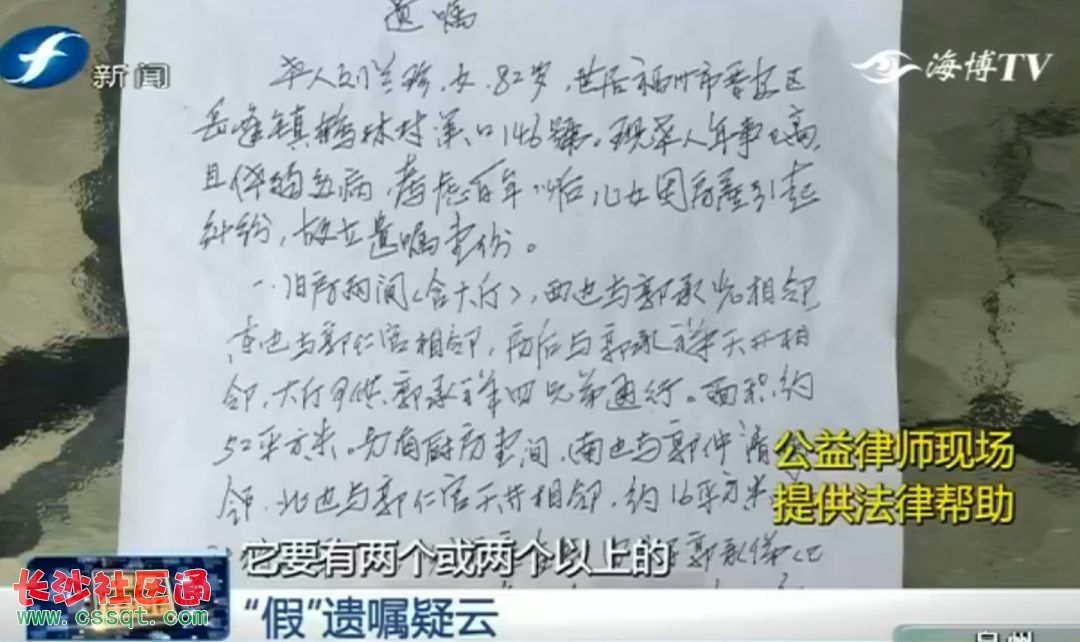 遗嘱
新闻
海博TV
本人刘兰珍,女,82岁,世居福州市晋安区
岳峰镇鹤林村溪口146號。现本人年事已高,
且体弱多病,考虑百年以后儿女因房产引起
纠纷,故立遗嘱壹份。
一、旧房两间(含大厅),西边与郭承光相邻
东边与郭仁官相邻,房后与郭承祥天井相
邻,大厅可供郭承祥四兄弟通行。面积约
52平方米。另有厨房壹间,(南边与郭仲清
邻,北边与郭仁官天井相邻,约16平方米
郭承
公益律师现场
提供法律帮助
它要有两个或两个以上的
长沙社区通
www.cssqt.com
“假”遗嘱疑云
泉州